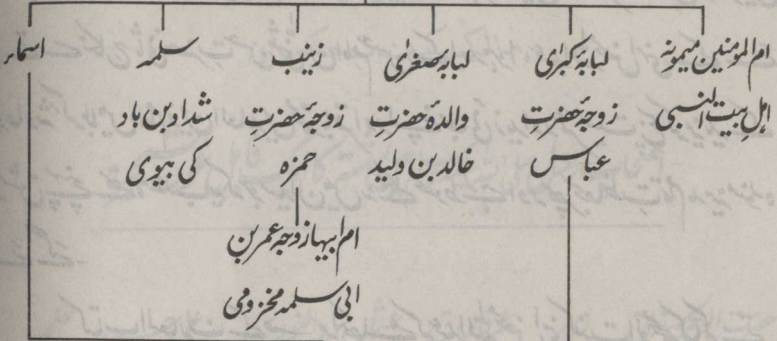 ام المومنین میمونہ
اہل بیت النبی
لبابہ کبرٰی
زوجۂ حضرتِ
عباس
لبابہ صغرٰی
والدۂ حضرتِ
خالد بن ولید
زینب
زوجۂ حضرتِ
حمزہ
ام ابیہا زوجہ عمر بن
ابی سلمہ مخزومی
سلمہ
شداد بن ہاد
کی بیوی
اسماء